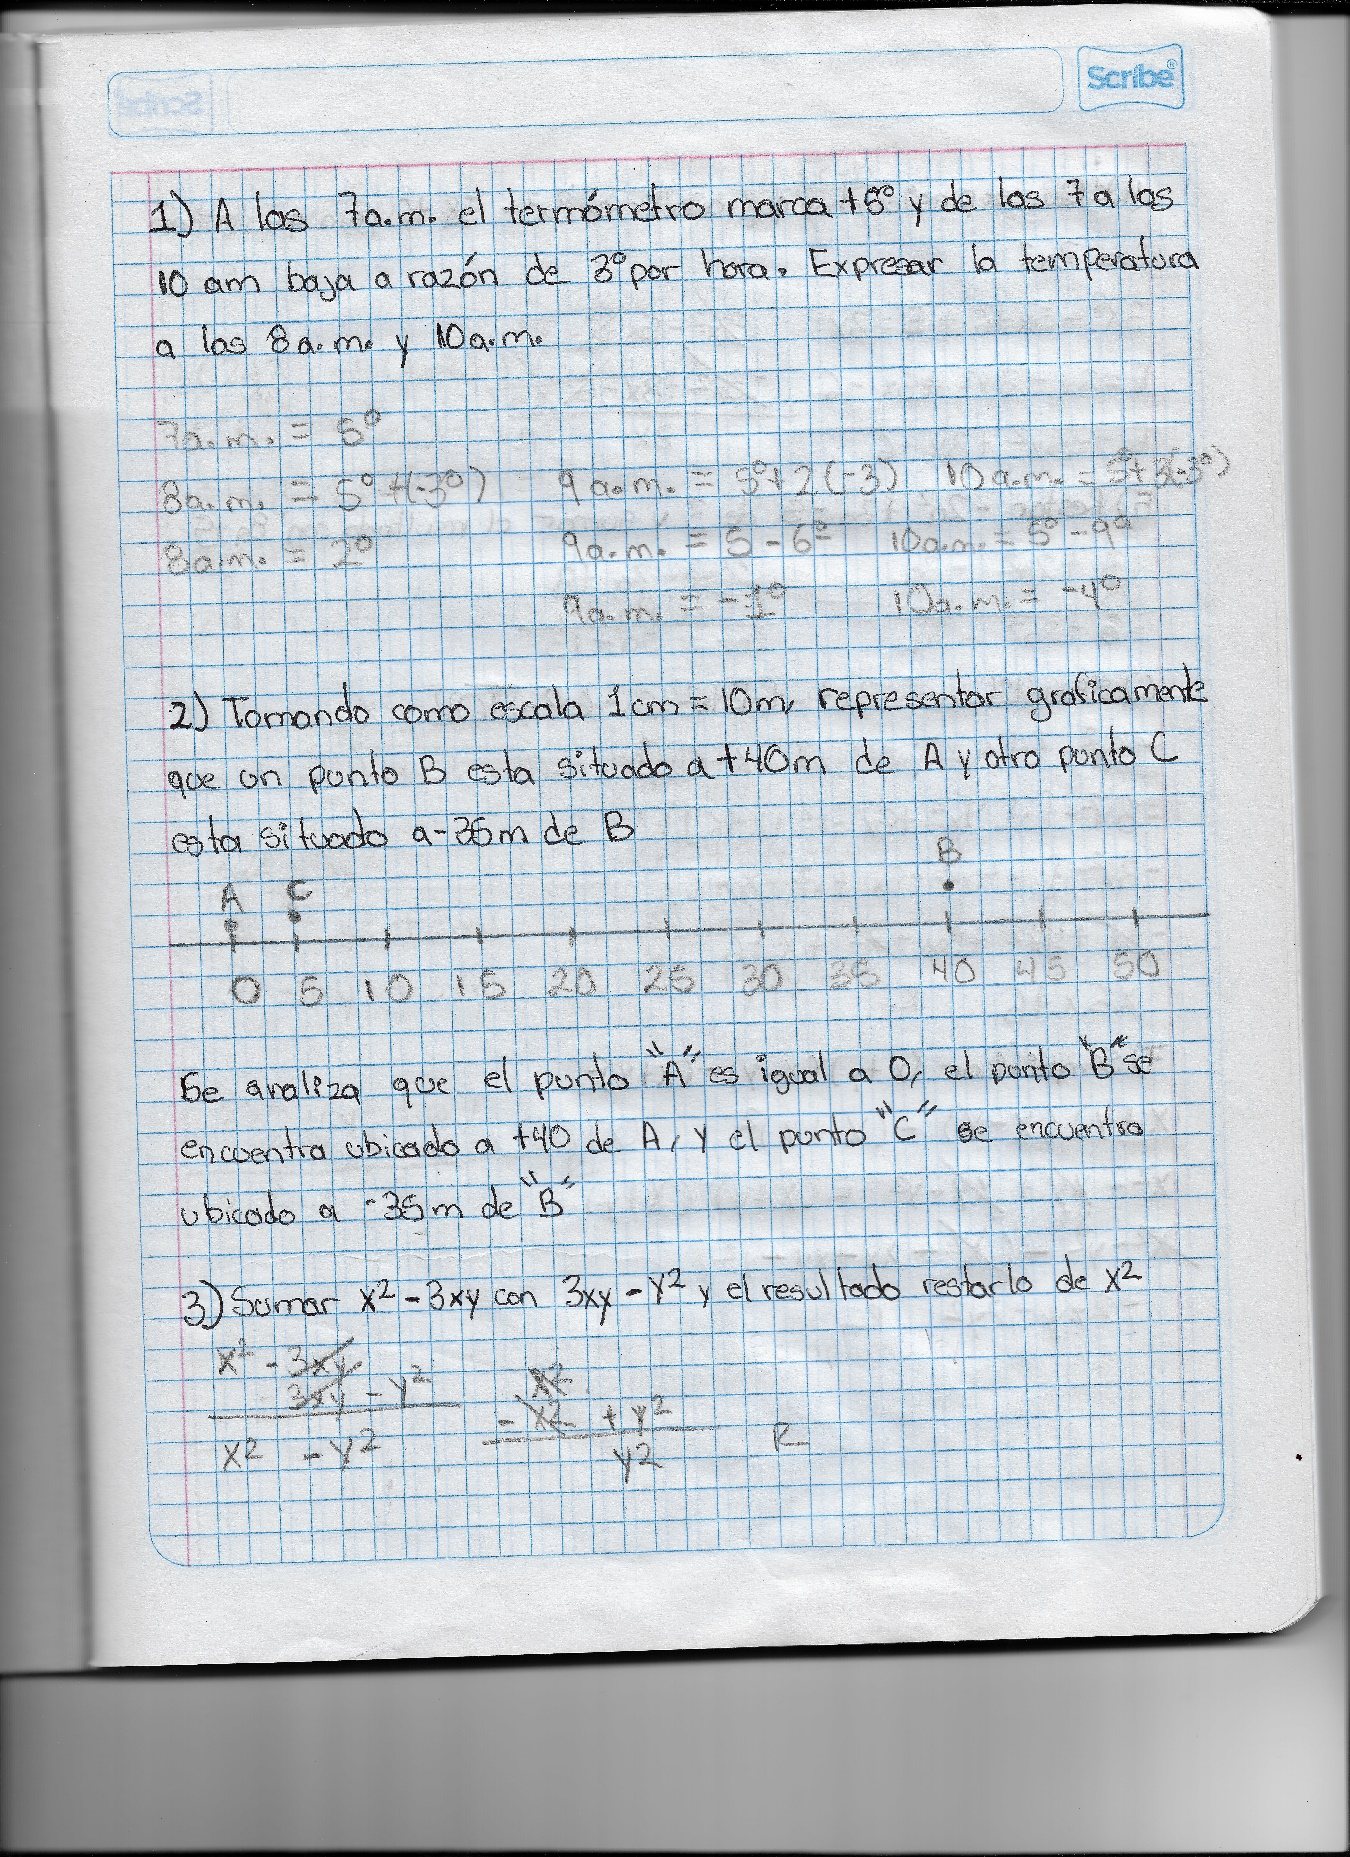 Scribe
1) A las 7a.m. el termómetro marca +5° y de las 7 a las
10 am baja a razón de 3° por hora. Expresar la temperatura
a las 8a.m. y 10a.m.
7a.m. = 5°
8a.m. = 5° +(-3°) 9a.m. = 5°+2(-3) 10a.m. = 5°+3(-3°)
8a.m. = 2° 9a.m. = 5 - 6° 10a.m. = 5° - 9°
9a.m. = -1° 10a.m. = -4°
2) Tomando como escala 1cm = 10m, representar graficamente
que un punto B esta situado a +40m de A y otro punto C
esta situado a -35m de B
A C B
0 5 10 15 20 25 30 35 40 45 50
Se analiza que el punto "A" es igual a 0, el punto "B" se
encuentra ubicado a +40 de A, y el punto "C" se encuentra
ubicado a -35m de "B"
3) Sumar x² - 3xy con 3xy - y² y el resultado restarlo de x²
x² - 3xy x²
3xy - y² - x² + y²
x² - y² y² R